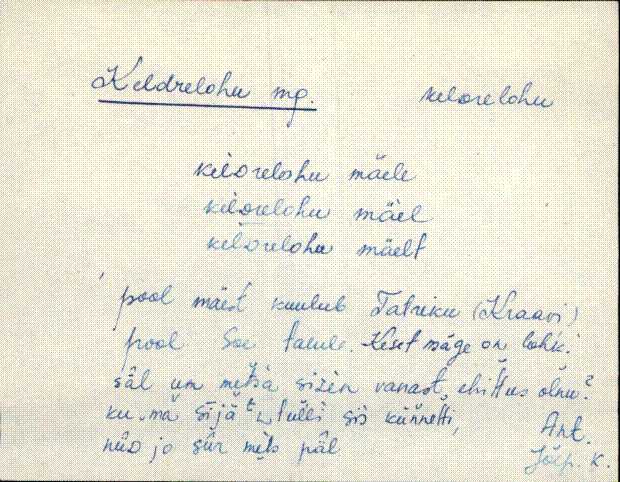 Keldrelohu mg. kelDrelohu
kelDrelohu mäele
kelDrelohu mäel
kelDrelohu mäelt
pool mäest kuulub Tatriku (Kraavi)
pool Soe talule. Keset mäge on lohk.
säl um mõtsa sizen vanast ehittus olnu?
ku mä sijä tulli sis künnetti,
nüD jo sür mets päl
Ant.
Jõep. K.